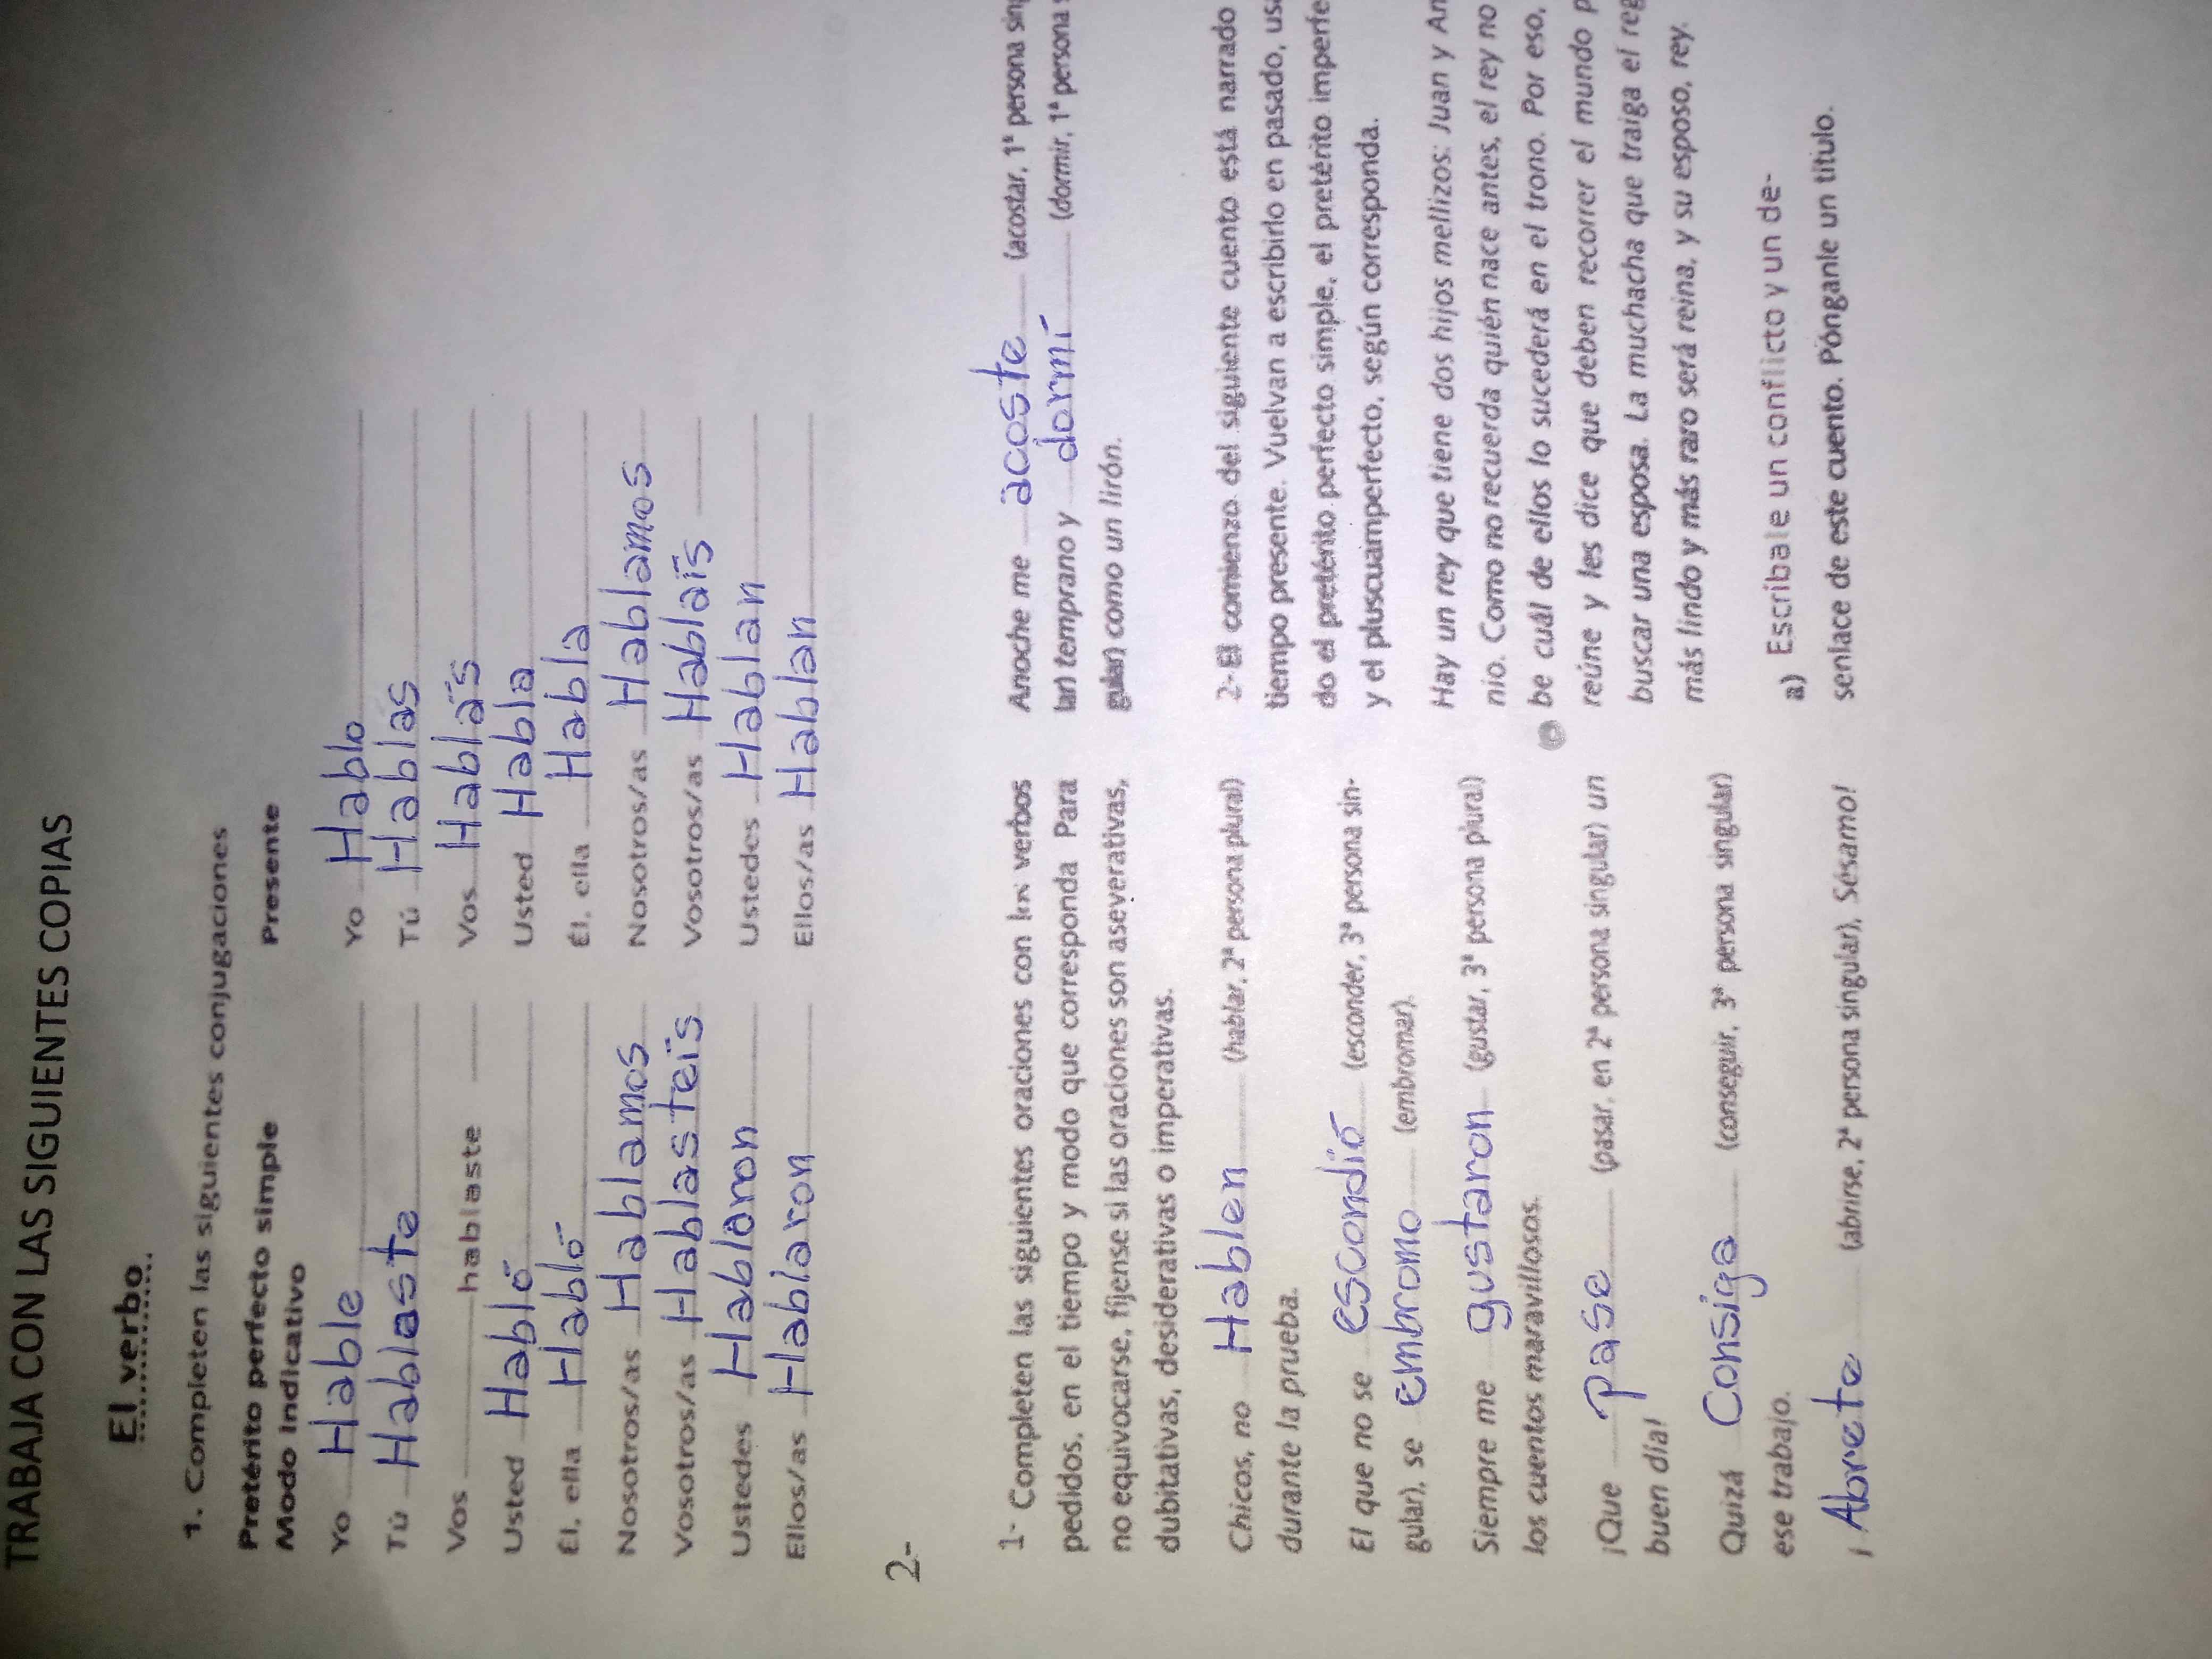 TRABAJA CON LAS SIGUIENTES COPIAS
El verbo
1. Completen las siguientes conjugaciones
Pretérito perfecto simple
Modo Indicativo
Yo Hable
Tú Hablaste
Vos hablaste
Usted Habló
Él, ella Habló
Nosotros/as Hablamos
Vosotros/as Hablasteís
Ustedes Hablaron
Ellos/as Hablaron
Presente
Yo Hablo
Tú Hablas
Vos Hablás
Usted Habla
Él, ella Habla
Nosotros/as Hablamos
Vosotros/as Hablaís
Ustedes Hablan
Ellos/as Hablan
2-
1- Completen las siguientes oraciones con los verbos
pedidos, en el tiempo y modo que corresponda Para
no equivocarse, fíjense si las oraciones son aseverativas,
dubitativas, desiderativas o imperativas.
Chicos, no Hablen (hablar, 2ª persona plural)
durante la prueba.
El que no se escondió (esconder, 3ª persona sin-
gular), se embromo (embromar).
Siempre me gustaron (gustar, 3ª persona plural)
los cuentos maravillosos.
¡Que pase (pasar, en 2ª persona singular) un
buen día!
Quizá Consiga (conseguir, 3ª persona singular)
ese trabajo.
¡ Abrete (abrirse, 2ª persona singular), Sésamo!
Anoche me acoste (acostar, 1ª persona sin
lar) temprano y dormí (dormir, 1ª persona
gular) como un lirón.
2- El comienzo del siguiente cuento está narrado
tiempo presente. Vuelvan a escribirlo en pasado, us
do el pretérito perfecto simple, el pretérito imperfe
y el pluscuamperfecto, según corresponda.
Hay un rey que tiene dos hijos mellizos: Juan y An
nio. Como no recuerda quién nace antes, el rey no
be cuál de ellos lo sucederá en el trono. Por eso,
reúne y les dice que deben recorrer el mundo p
buscar una esposa. La muchacha que traiga el reg
más lindo y más raro será reina, y su esposo, rey.
a) Escríbale un conflicto y un de-
senlace de este cuento. Pónganle un título.